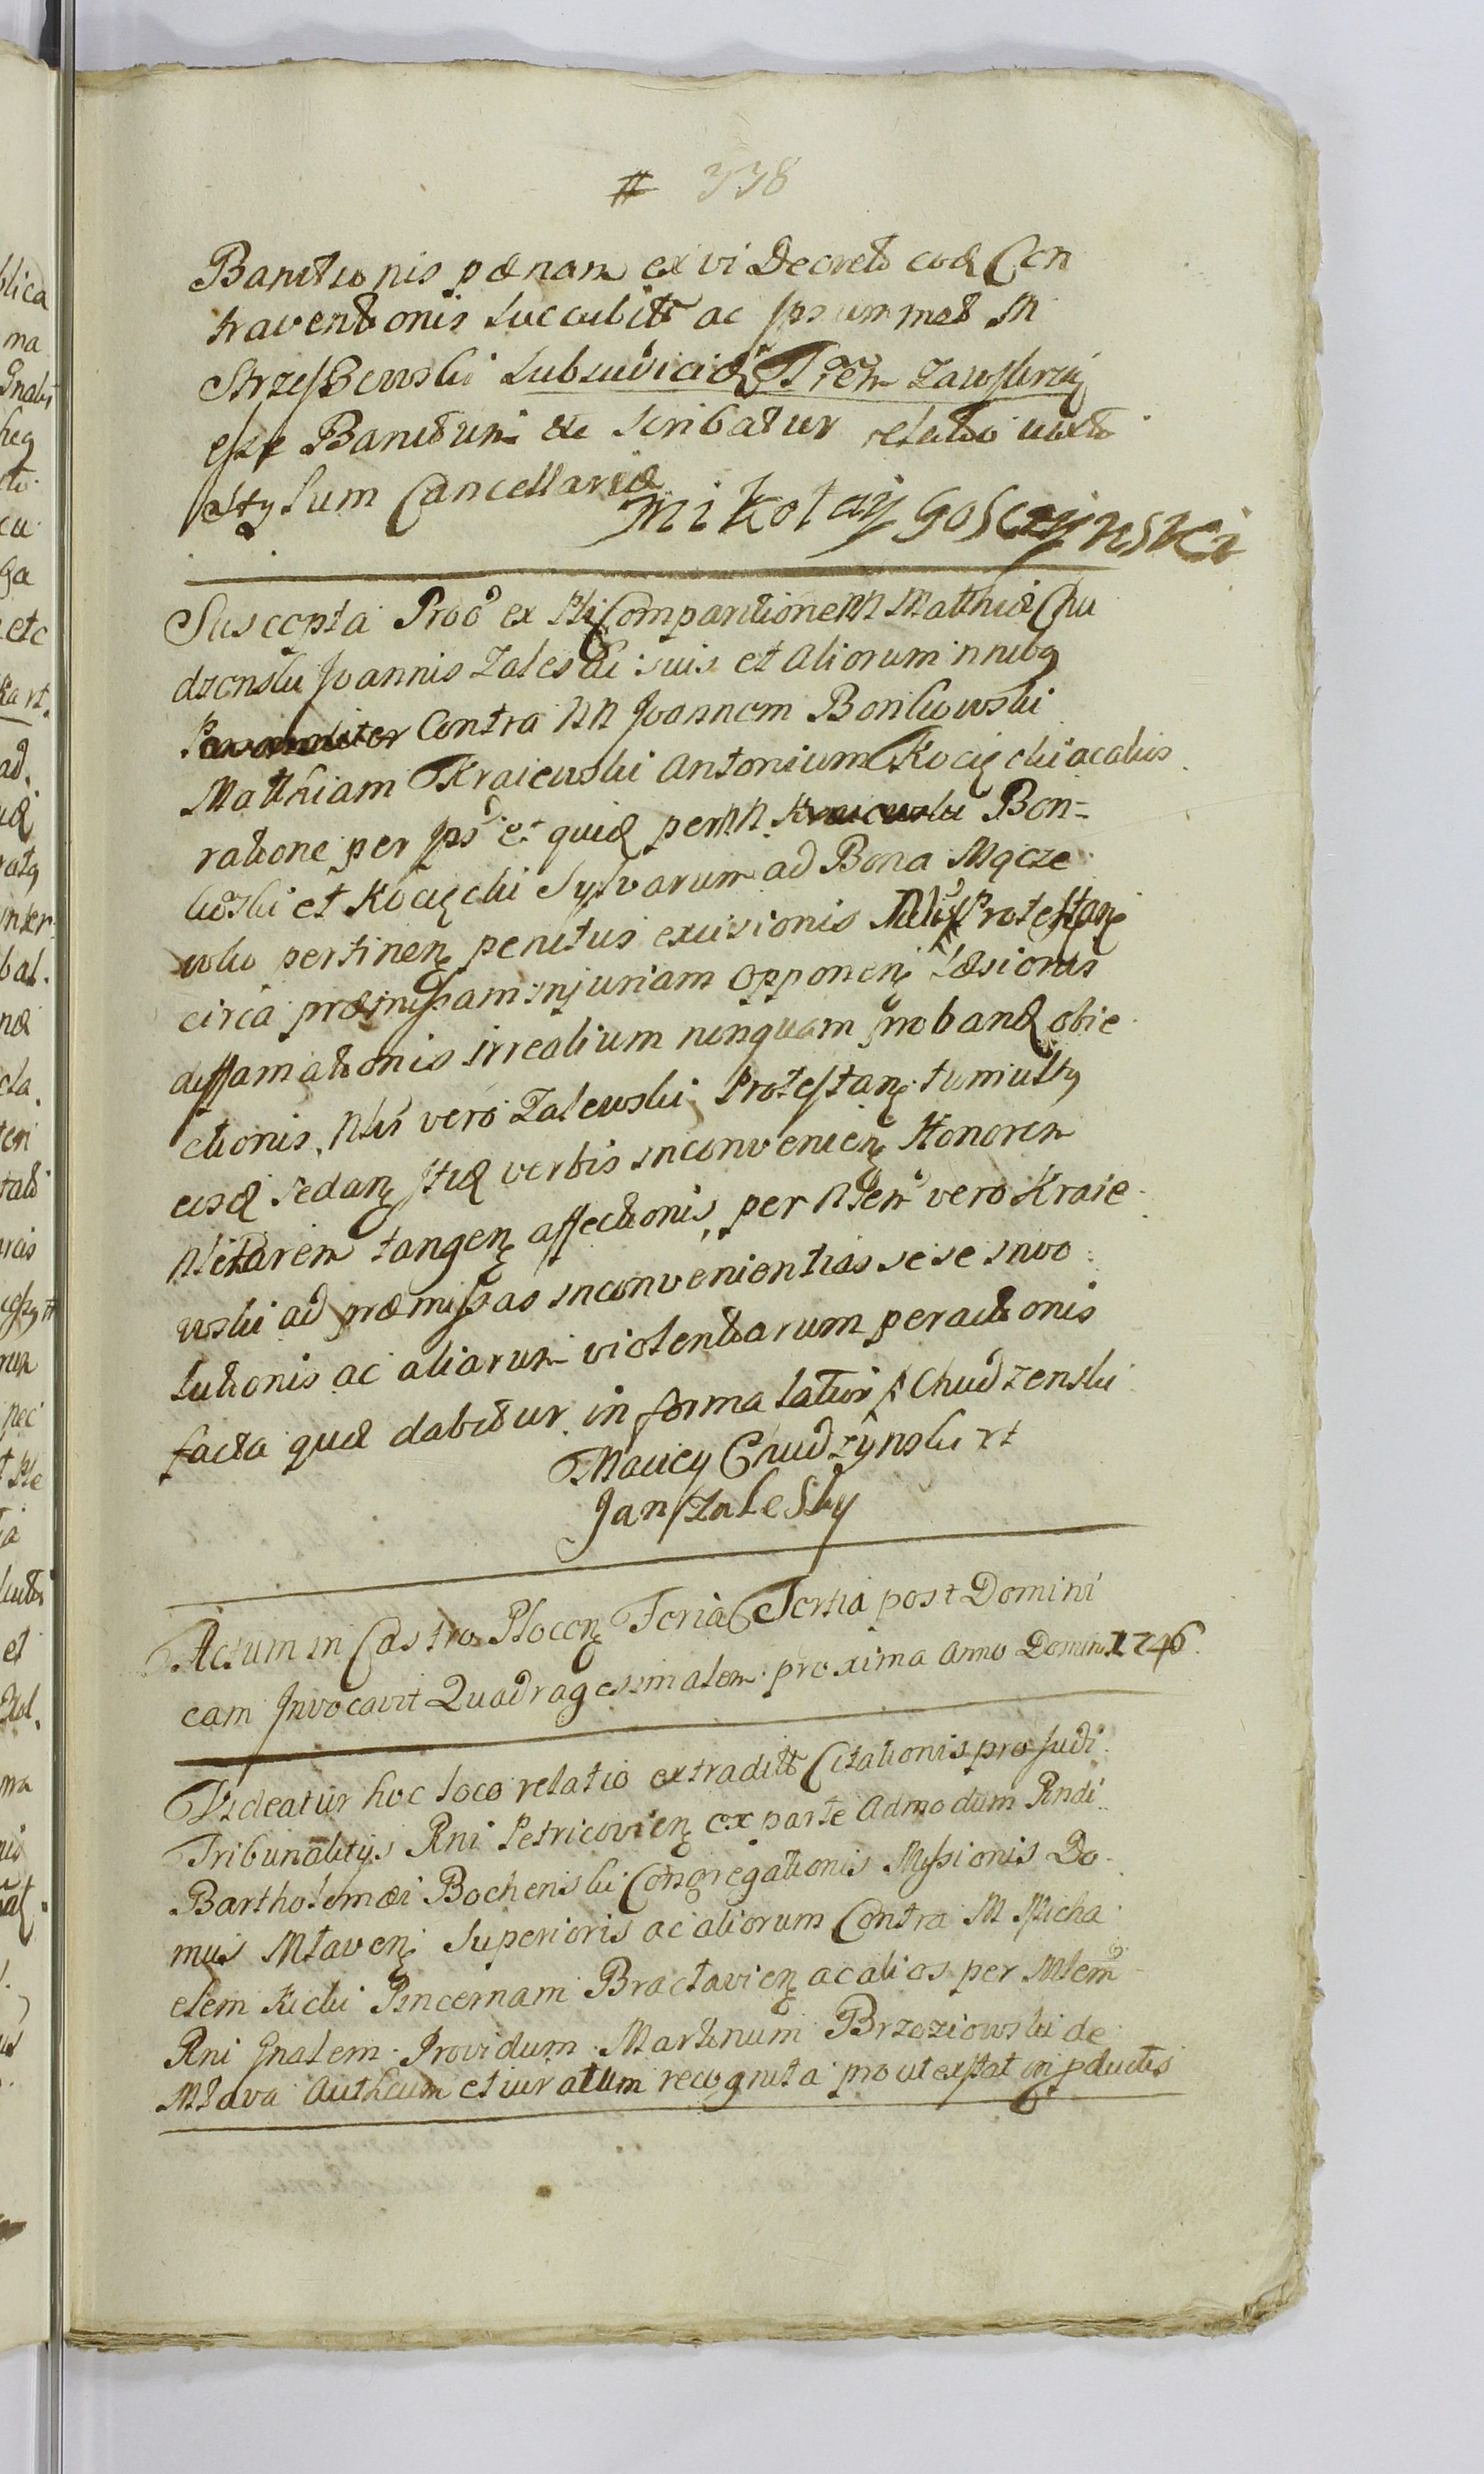 # 338
Banitionis pænam ex vi Decreti eod Con
traventionis succubitæ ac Ipsummet M
Strzeszewski Subiudicio Trēn Zawskrzyn
esse Banitum &c scribatur relatio iuxta
stylum Cancellariæ
Mikołay Gosczynski
Suscepta Pro͠o ex Pti Comparitione NN Matthiæ Chu
dzenski Joannis Zaleski suis et aliorum nnibq
contra NN Joannem Bonkowski
Matthiam Kraiewski Antonium Kocięcki ac alios
ratione per Ips et quid per NN Bon=
koski et Kocięcki Sylvarum ad Bona Mącze
wko pertinen penitus excisionis Protestan
circa præmissam injuriam opponen Læsionis
diffamationis irrealium nunquam proband obie
ctionis, Nlis vero Zalewski Protestan tumultq
eosd sedan verbis inconvenien Honorem
Nlitarem tangen affectionis, per Nlem vero Kraie
wski ad præmissas inconvenientias sese invo
lutionis ac aliarum violentiarum peractionis
facta quæ dabitur in forma latiori Chudzenski
Maciey Chudzynski rt
Jan Zalesky
Actum in Castro Plocen Feria Tertia post Domini
cam Invocavit Quadragesimalem proxima Anno Domini 1746
Videatur hoc loco relatio extraditæ Citationis pro Judi
Tribunalitys Rni Petricovien ex parte Admodum Rndi
Bartholomæi Bochenski Congregationis Missionis Do
mus Mlaven Superioris ac aliorum Contra M Micha
elem Kicki Pincernam Bractavien ac alios per Mlem
Rni Gnalem Providum Martinum Brzoziowski de
Mlava Authcum et iuratum recognita prout extat in pductis